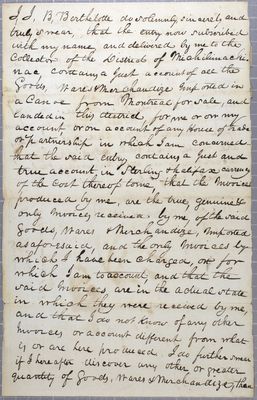 I, J, B, Berthelotte do solemnly, sincerely, and
truly, swear, that the entry now subscribed
with my name, and delivered by me to the
Collector of the District of Michilimacki-
nac, contains a Just account of all the
Goods, Wares & Merchandize Imported in
a Canoe from Montreal for sale, and
landed in this district, for me or on my
account or on account of any House of trade
or partnership in which I am concerned
that the said Entry, contains a Just and
true account, in Sterling & halifax currency
of the Cost thereof to me, that the Invoices
produced by me, are the true, genuine &
only Invoices, received by me, of the said
Goods, Wares & Merchandize, Imported
as aforesaid, and the only Invoices by
which I have been charged, or for
which I am to account, and that the
said Invoices are in the actual state
in which they were received by me,
and that I do not know of any other
Invoices or account different from what
is or are here produced I do further swear
if I hereafter discover any other, or greater
quantity of Goods, Wares & Merchandize, than